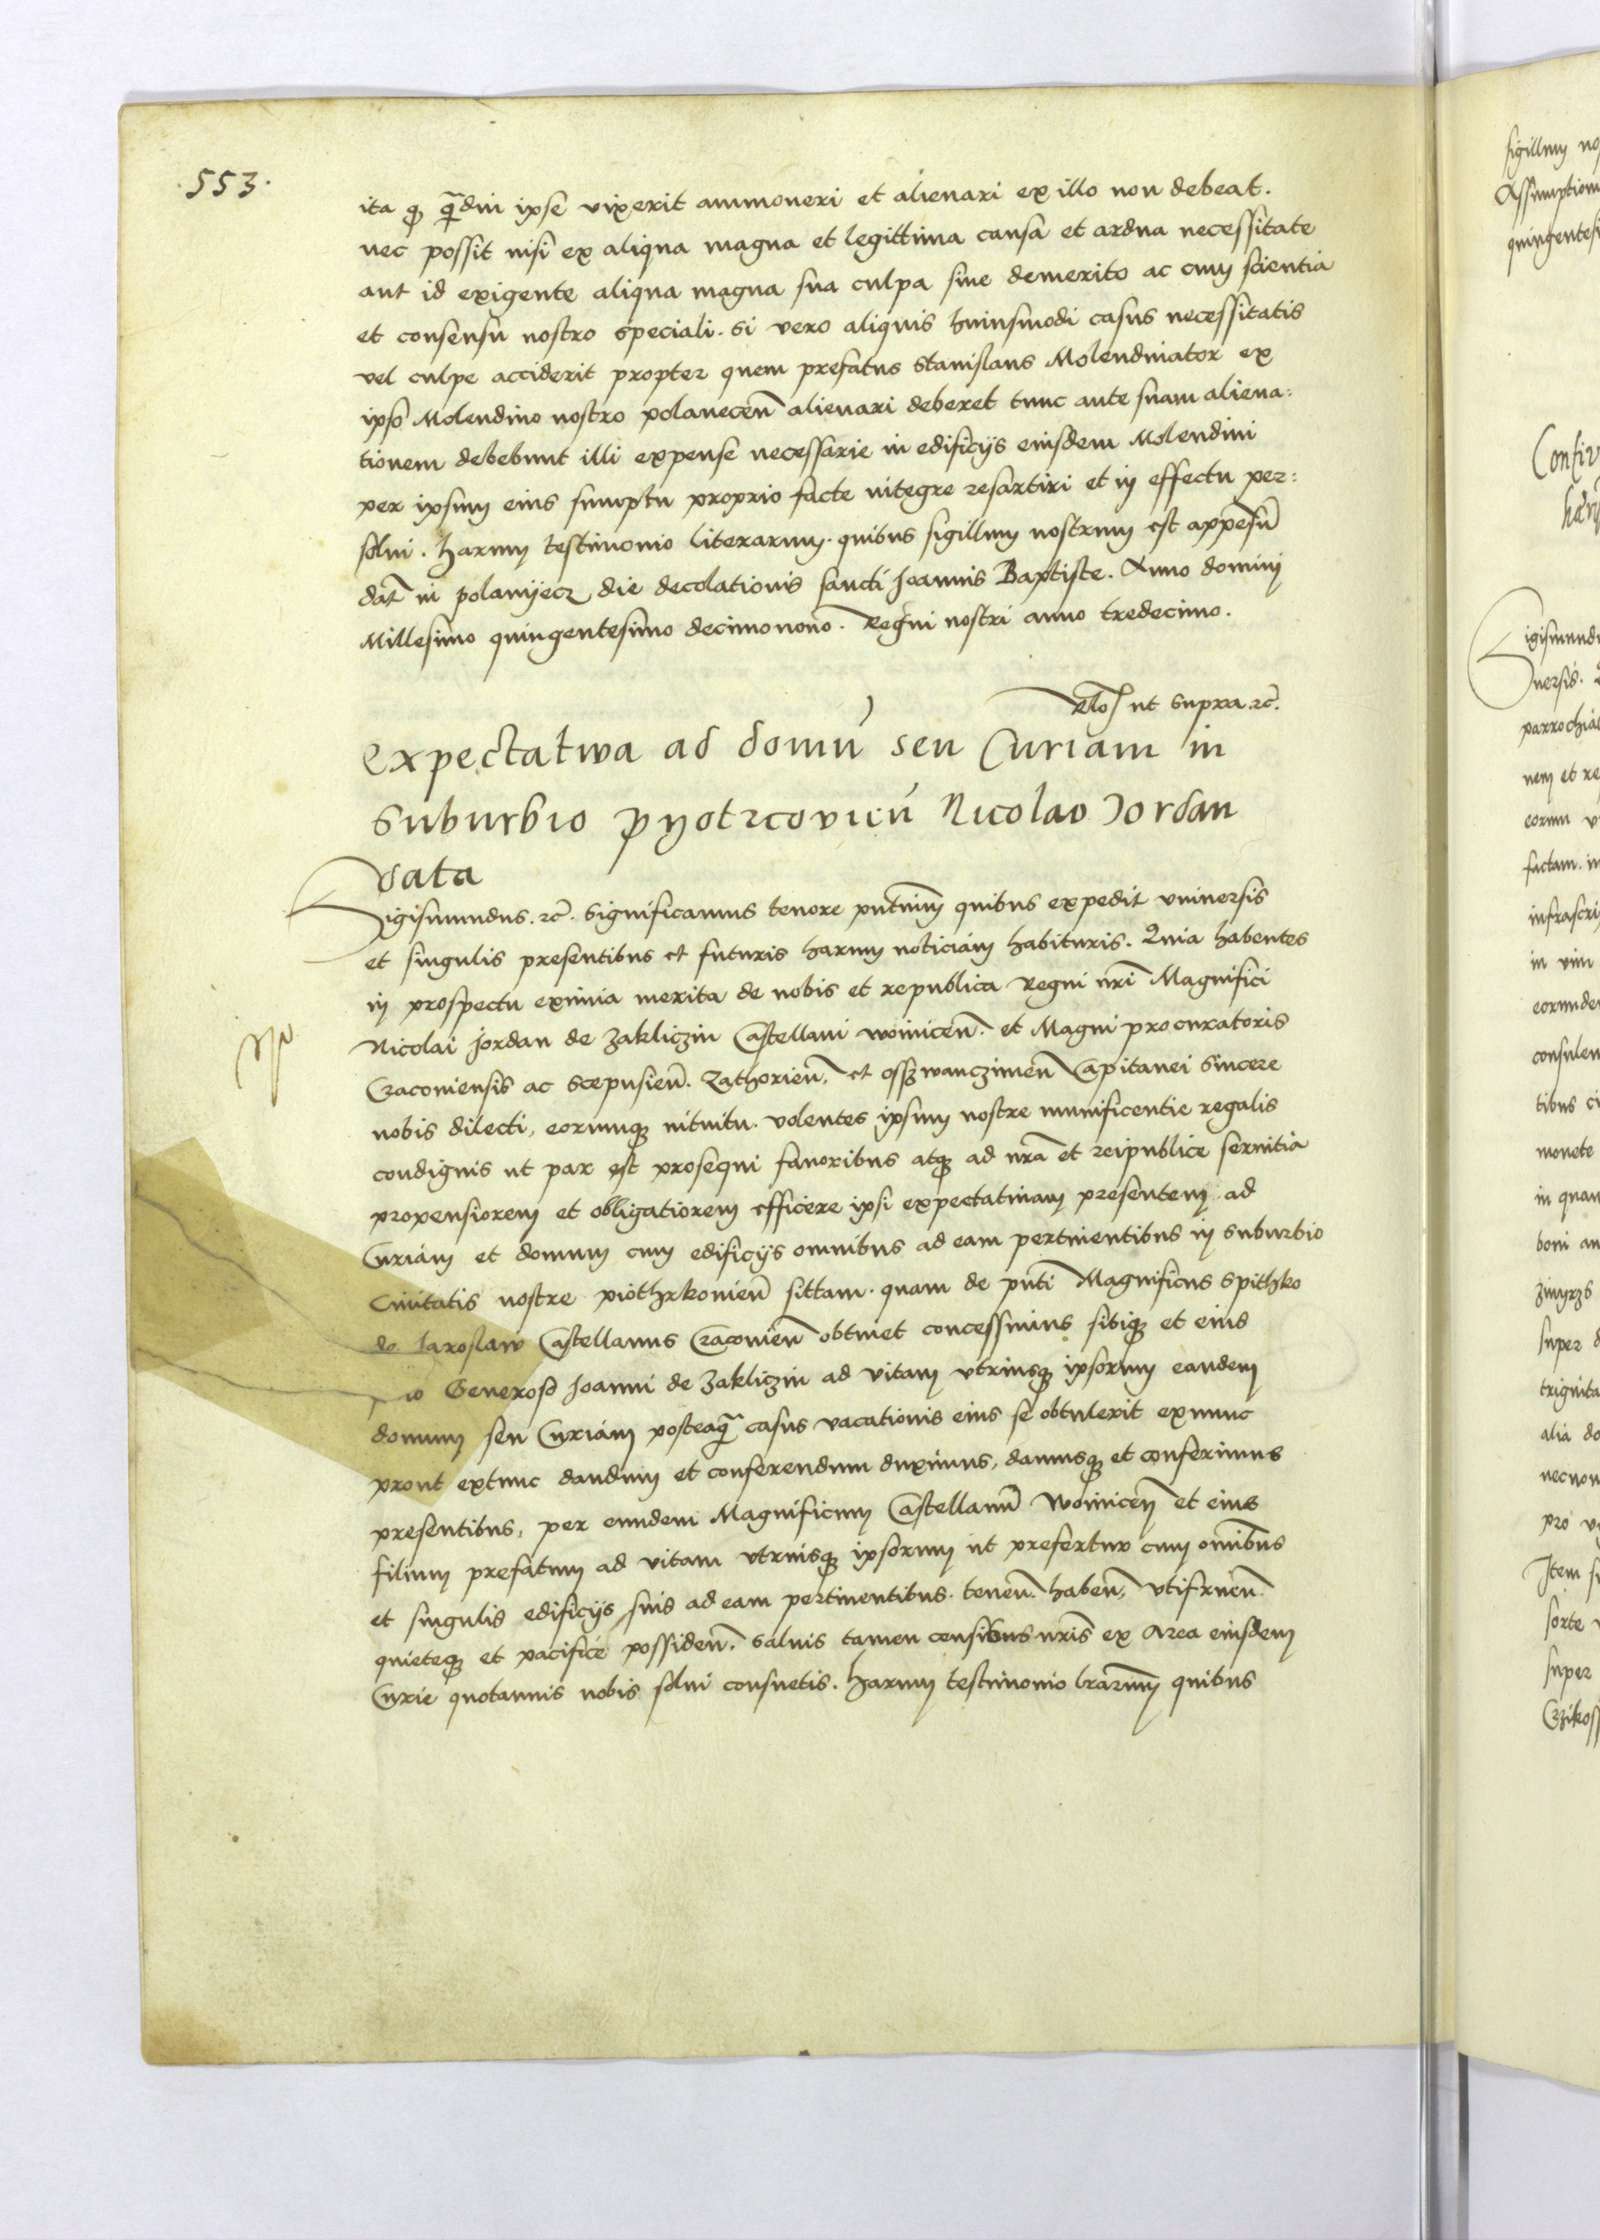 .553.
ita qꝫ qͣdiu ipse vixerit ammoneri et alienari ex illo non debeat.
nec possit nisi ex aliqua magna et legittima causa et ardua necessitate
aut id exigente aliqua magna sua culpa siue demerito ac cum scientia
et consensu nostro speciali. Si vero aliquis huiusmodi casus necessitatis
vel culpe acciderit propter quem prefatus Stanislaus Molendinator ex
ipso Molendino nostro polanecen̄ alienari deberet tunc ante suam aliena:
tionem debebunt illi expense necessarie in edificijs eiusdem Molendini
per ipsum eius sumptu proprio facte integre resartiri et in effectu per:
solui. harum testimonio literarum. quibus sigillum nostrum est appēsū
dat̄ in polanyecz die decolationis sancti Joannis Baptiste. Anno domini
Millesimo quingentesimo decimonono. Regni nostri anno tredecimo.
ut supra. ꝛc̄.
Expectatiua ad domū seu Curiam in
suburbio pyotrcouieñ Nicolao Jordan
data
Sigismundus. ꝛc̄. Significamus tenore pn̄tium quibus expedit vniuersis
et singulis presentibus et futuris harum noticiam habituris. Quia habentes
in prospectu eximia merita de nobis et republica Regni nr̄i Magnifici
Nicolai Jordan de Zakliczin Castellani woinicen̄. et Magni procuratoris
Cracouiensis ac Scepusien̄. Zathorien̄. et osszwanczimen̄ Capitanei sincere
nobis dilecti, eorumqꝫ intuitu. volentes ipsum nostre munificentie regalis
condignis ut par est prosequi fauoribus atqꝫ ad nr̄a et reipublice seruitia
propensiorem et obligatiorem efficere ipsi expectatiuam presentem ad
Curiam et domum cum edificijs omnibus ad eam pertinentibus in suburbio
Ciuitatis nostre piothrkouien̄ sittam. quam de pn̄ti Magnificus Spithko
de Jaroslaw Castellanus Cracouien̄ obtinet concessimus sibiqꝫ et eius
Generoso Joanni de Zakliczin ad vitam vtriusqꝫ ipsorum eandem
domum seu Curiam posteaqͣ casus vacationis eius se obtulerit exnunc
prout extunc dandum et conferendum duximus, damusqꝫ et conferimus
presentibus, per eundem Magnificum Castellanū woinicen̄ et eius
filium prefatum ad vitam vtriusqꝫ ipsorum ut prefertur cum om̄ibus
et singulis edificijs suis ad eam pertinentibus. tenen̄. haben̄, vtifruen̄.
quieteqꝫ et pacifice possiden̄. Saluis tamen censibus nr̄is ex Area eiusdem
Curie quotannis nobis solui consuetis. harum testimonio lr̄arum quibus